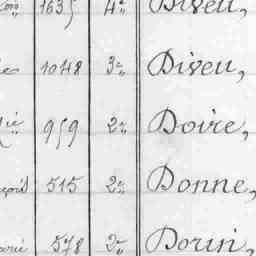 1635 4e Diveu,
1048 3e Diveu,
959 2e Doire,
515 2e Donne,
578 2e Dorin,